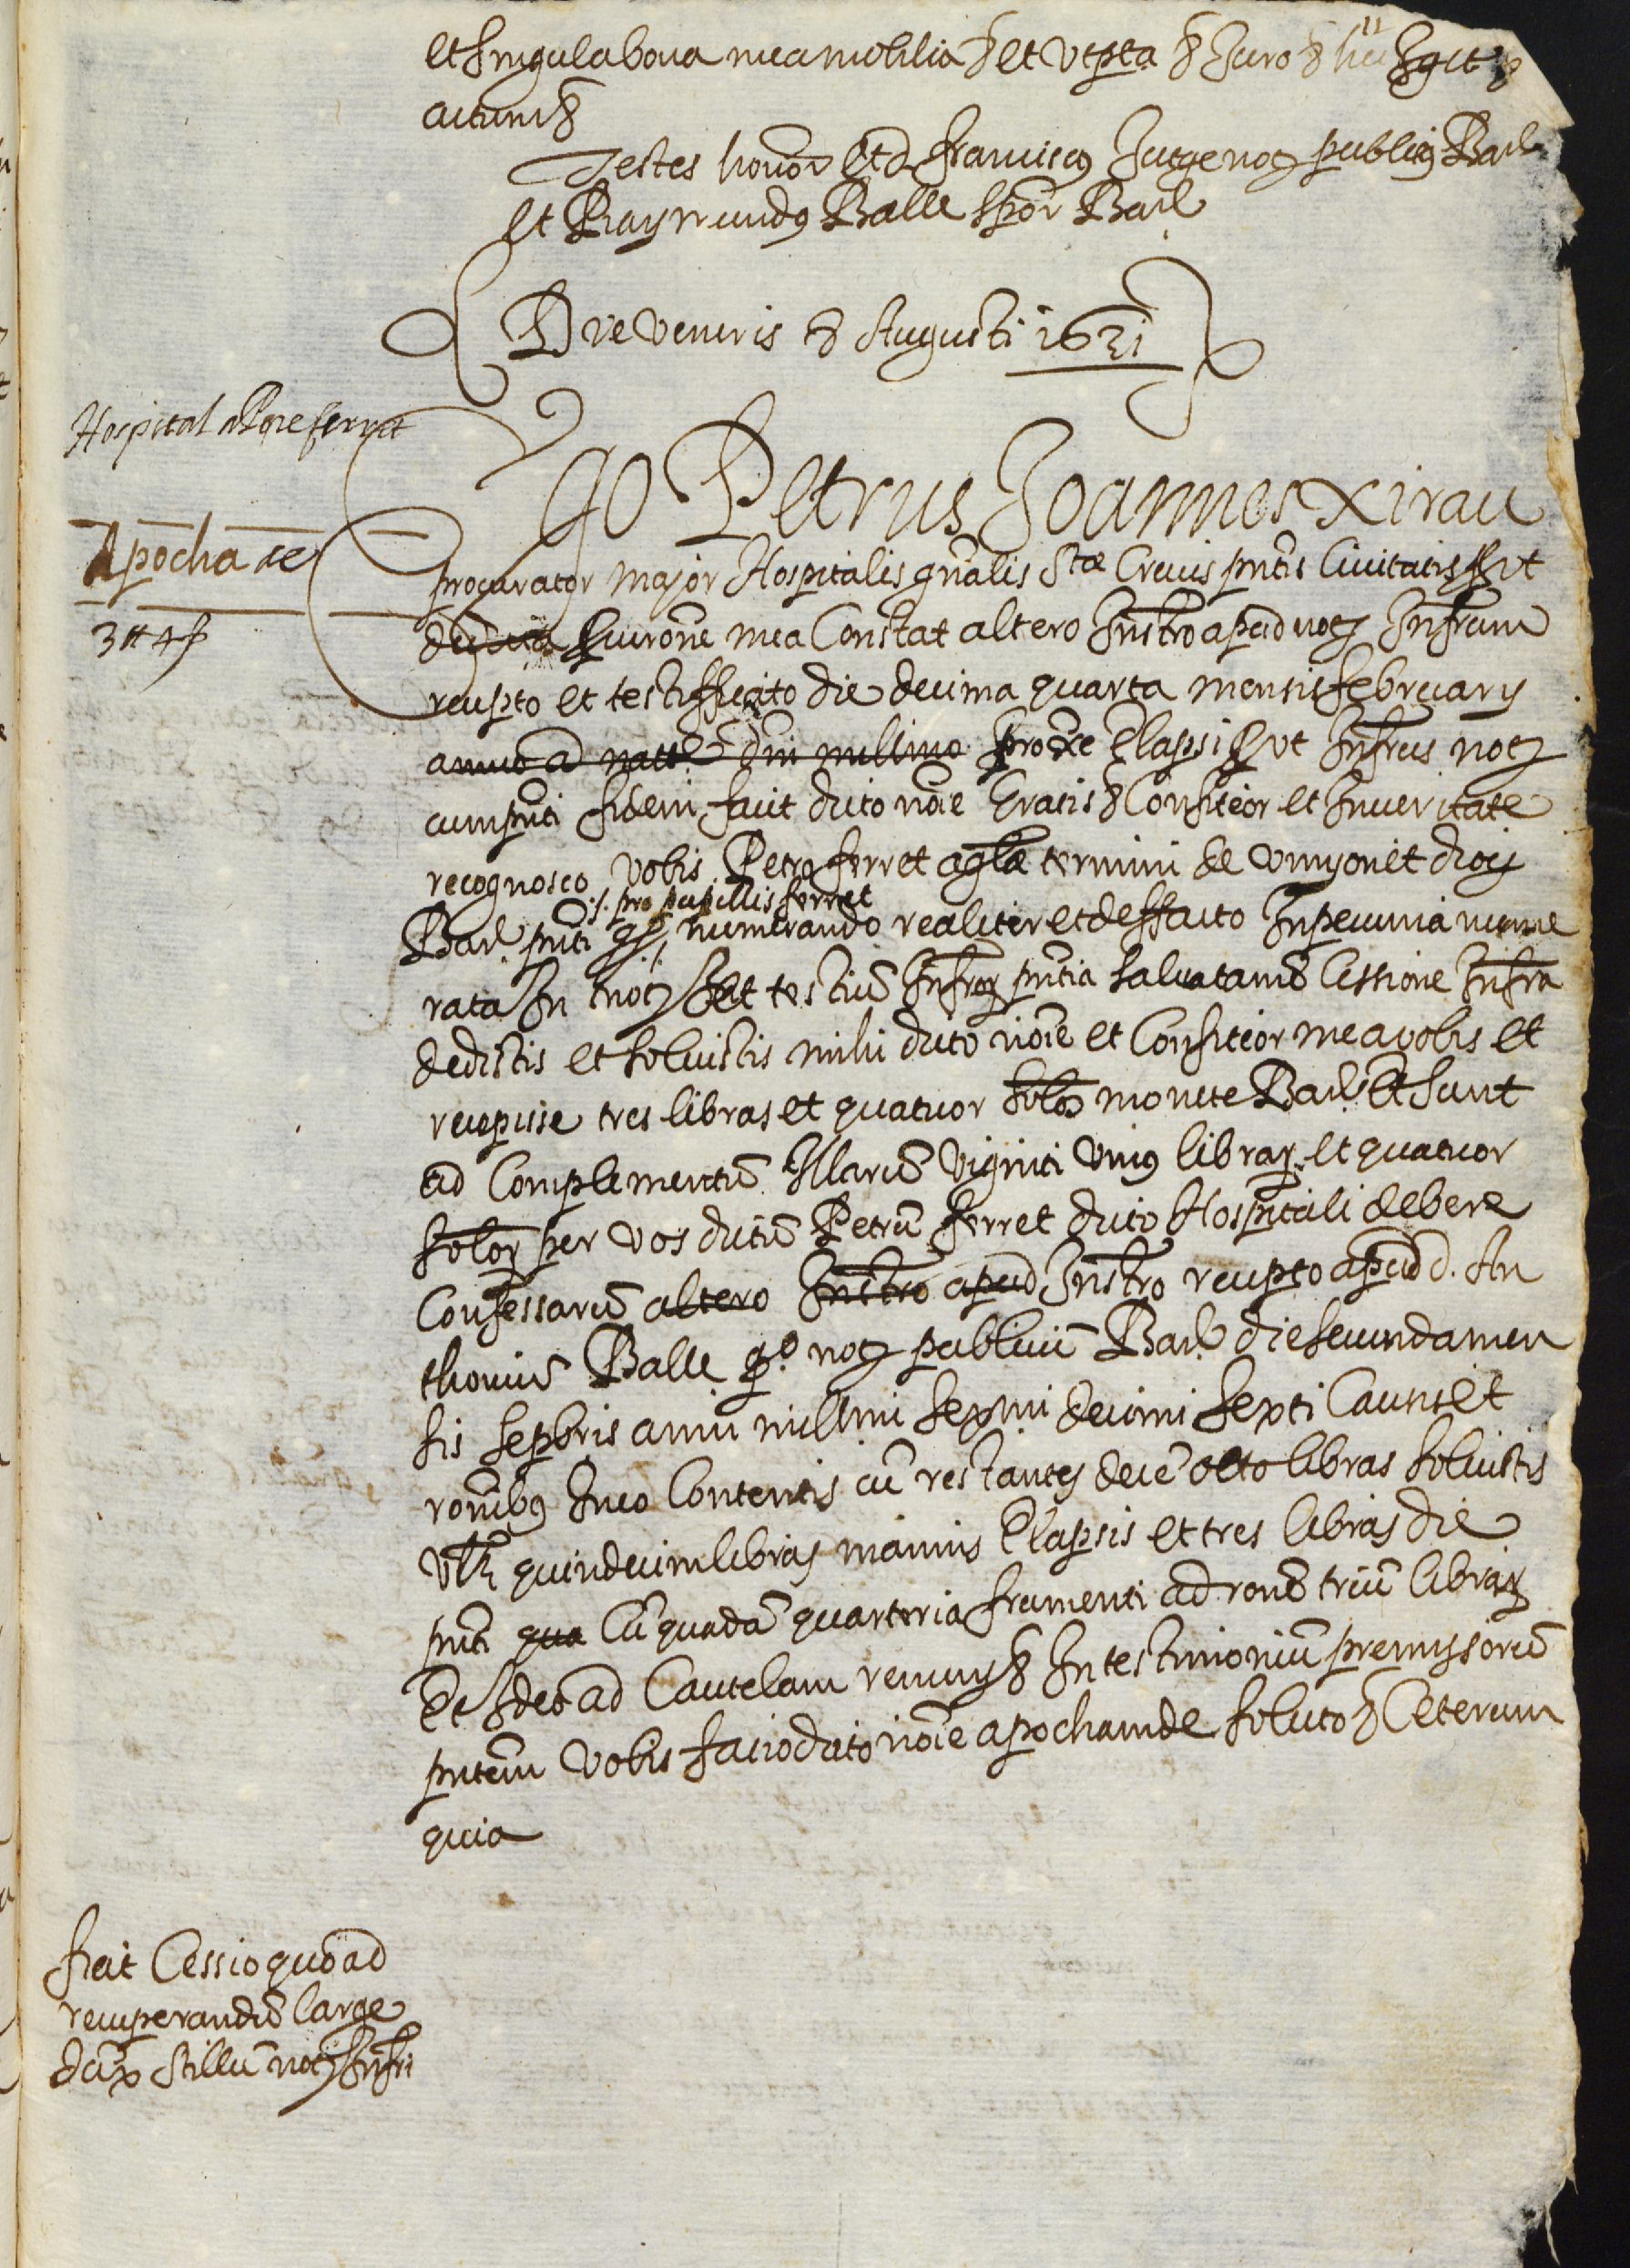 et singula bona mea mobilia &c et ut pta &c Juro &c hec Igit &c
actum &c
Testes honor et d. Franciscus Jutge not publicus Barc
et Raymundus Balle scptor Barc
Die veneris 8 Augusti 1631
Hospital a Pere ferret
Apocha de
3 ₶ 4 s
Ego Petrus Joannes Xirau
procurator major Hospitalis gnalis Stæ Crucis pntis Civitatis put
de dicta procurone mea Constat altero Instro apud not Infrum
recepto et testifficato die decima quarta mensis februarij
anno a natte Dni millmo proxe Elapsi put Infrus not
cum pnti fidem facit dicto noie Gratis &c Confiteor et In veritate
recognosco vobis Petro ferret aglæ termini de Vinyonet dioc
.s. pro pupillis ferret
Barc pnti qd numerando realiter et de ffacto In pecunia nume
rata In not et testium Infror pntia salva tamen Cessione Infra
dedistis et solvistis mihi dicto noie et Confiteor me a vobis et
recepisse tres libras et quatuor solos monete Barc Et sunt
ad Complementum Illarum viginti unius librar et quatuor
solor per vos dictum Petrum ferret dicto Hospitali debere
Confessarum altero Instro apud Instro recepto apud d. An
thonium Balle qo. not publicum Barc die secunda men
sis sepbris anni millmi sexmi decimi sexti Causis et
ronibus In eo Contentis cum restantes decem octo libras solvistis
vtz quindecim libras mannis Elapsis et tres libras die
pnti qua Cum quadam quarteria frumenti ad ronem trium librar
Et Ideo ad Cautelam renuns &c In testimonium premissorum
pntem vobis facio dicto noie apocham de soluto &c Ceterum
quia
fiat Cessio quo ad
recuperandum large
dum stillum not Infri